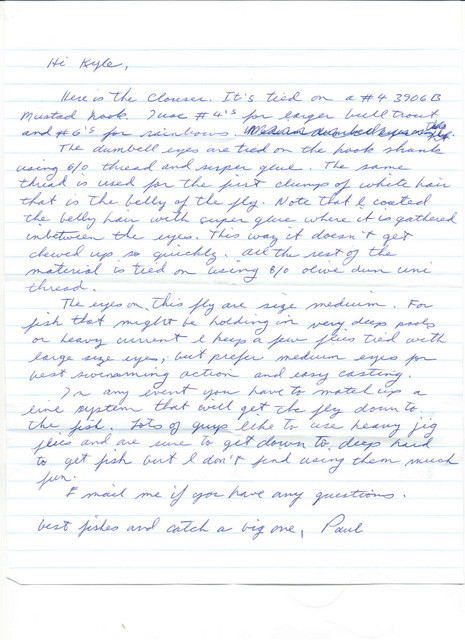 Hi Kyle,
Here is the Clouser. It's tied on a #4 3906B
Mustad hook. I use #4's for larger bull trout
and #6's for rainbows.
The dumbell eyes are tied on the hook shank
using 6/0 thread and super glue. The same
thread is used for the first clump of white hair
that is the belly of the fly. Note that I coated
the belly hair with super glue where it is gathered
inbetween the eyes. This way it doesn't get
chewed up so quickly. All the rest of the
material is tied on using 8/0 olive dun uni
thread.
The eyes on this fly are size medium. For
fish that might be holding in very deep pools
or heavy current I keep a few flies tied with
large size eyes, but prefer medium eyes for
best swimming action and easy casting.
In any event you have to match up a
line system that will get the fly down to
the fish. Lots of guys like to use heavy jig
flies and are sure to get down to deep
to get fish but I don't find using them much
fun.
E mail me if you have any questions.
best fishes and catch a big one, Paul